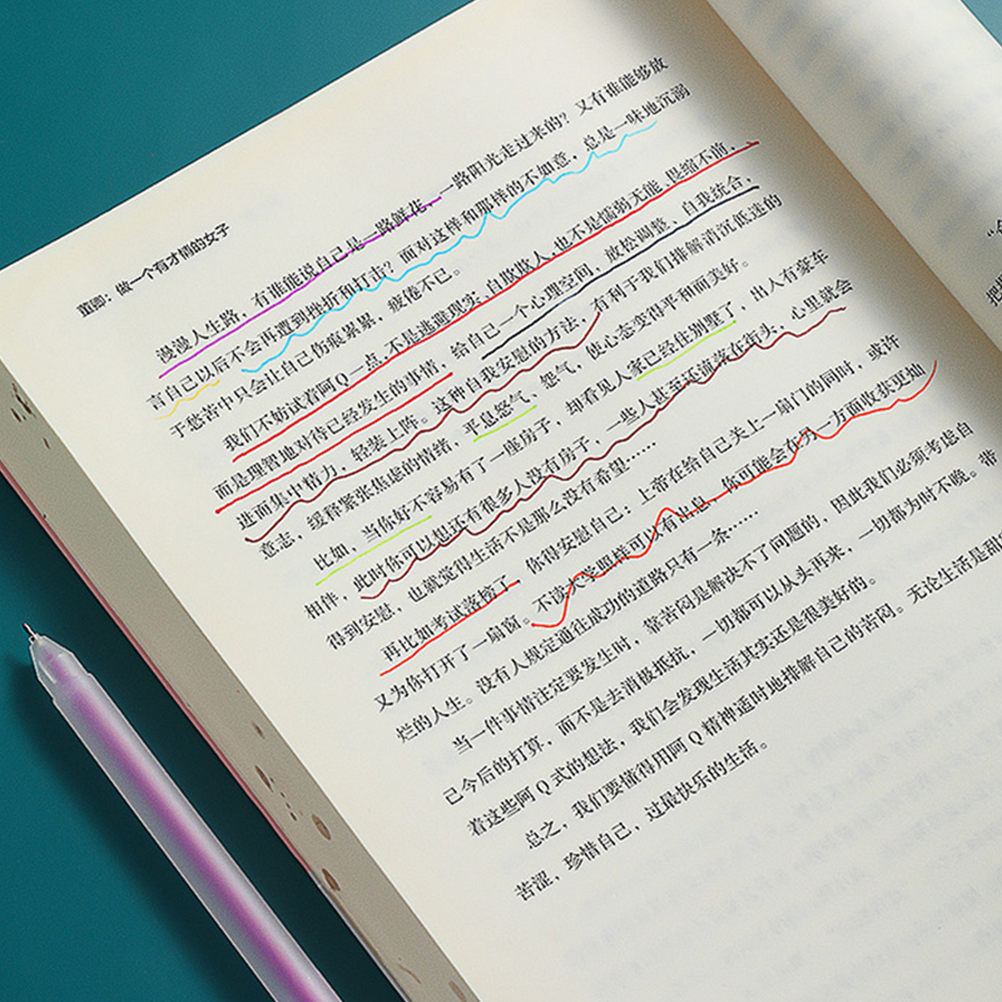 董卿：做一个有才情的女子
漫漫人生路，有谁能说自己是一路鲜花、一路阳光走过来的？又有谁能够放
言自己以后不会再遭到挫折和打击？面对这样和那样的不如意，总是一味地沉溺
于愁苦中只会让自己伤痕累累，疲倦不已。
我们不妨试着阿Q一点，不是逃避现实、自欺欺人，也不是懦弱无能、畏缩不前，
而是理智地对待已经发生的事情，给自己一个心理空间，放松调整、自我统合，
进而集中精力，轻装上阵。这种自我安慰的方法，有利于我们排解消沉低迷的
意志，缓释紧张焦虑的情绪，平息怒气、怨气，使心态变得平和而美好。
比如，当你好不容易有了一座房子，却看见人家已经住别墅了，出入有豪车
相伴，此时你可以想还有很多人没有房子，一些人甚至还流落在街头，心里就会
得到安慰，也就觉得生活不是那么没有希望……
再比如考试落榜了，你得安慰自己：上帝在给自己关上一扇门的同时，或许
又为你打开了一扇窗。不读大学照样可以有出息，你可能会在另一方面收获更灿
烂的人生。没有人规定通往成功的道路只有一条……
当一件事情注定要发生时，靠苦闷是解决不了问题的，因此我们必须考虑自
己今后的打算，而不是去消极抵抗，一切都可以从头再来，一切都为时不晚。带
着这些阿Q式的想法，我们会发现生活其实还是很美好的。
总之，我们要懂得用阿Q精神适时地排解自己的苦闷。无论生活是甜
苦涩，珍惜自己，过最快乐的生活。